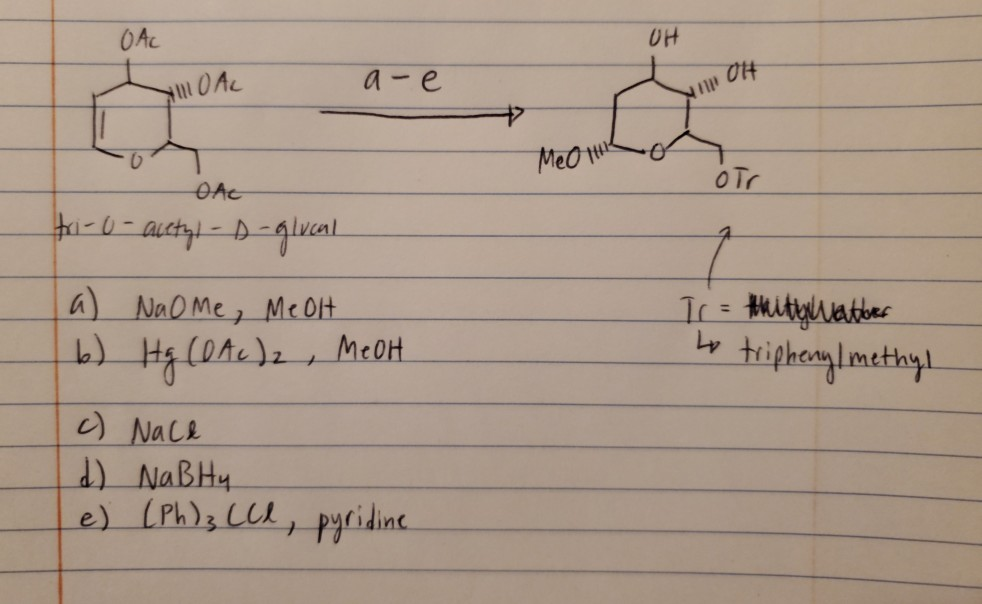 OAc OH
OAc a-e OH
O MeO O
OAc OTr
tri-O-acetyl-D-glucal
a) NaOMe, MeOH Tr =
b) Hg(OAc)2, MeOH triphenylmethyl
c) NaCl
d) NaBH4
e) (Ph)3CCl, pyridine